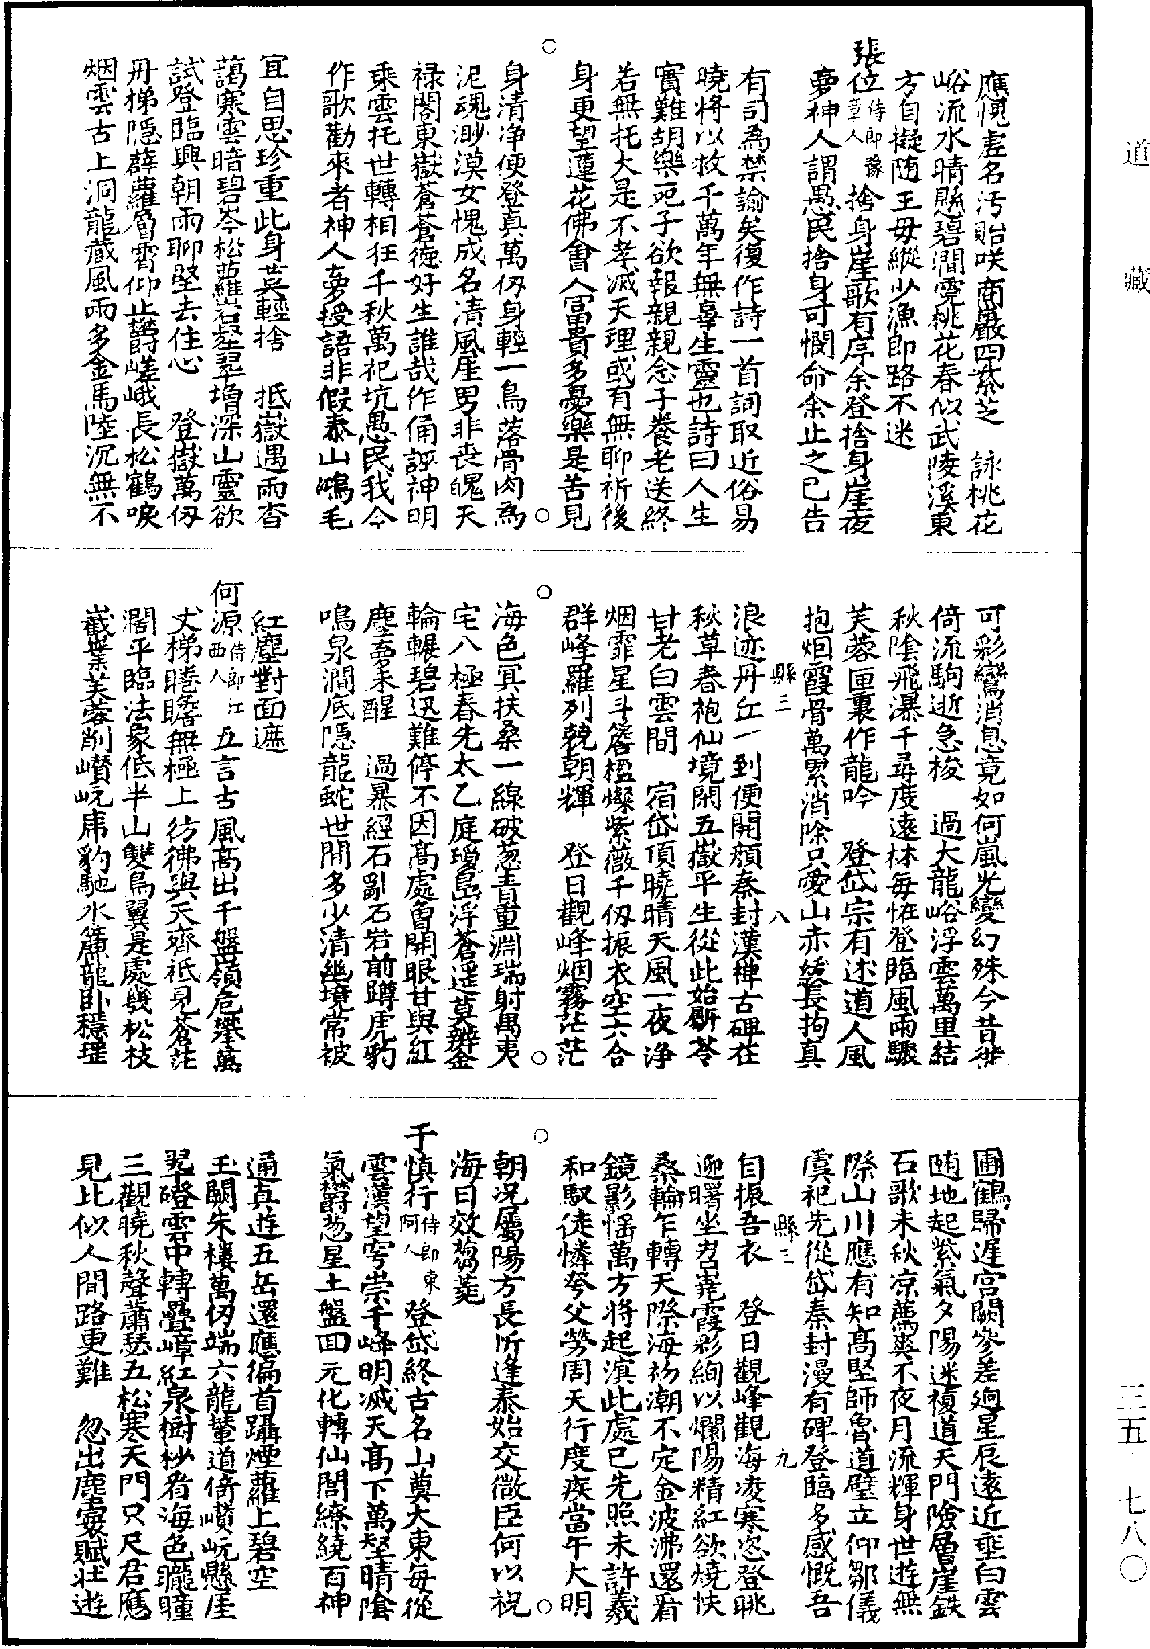 應愧虛名汚貽咲商巖四紫芝　詠桃花
峪流水晴懸碧澗霓桃花春似武陵溪東
方自擬随王母縱少漁郎路不迷
張位侍郎豫章人　捨身崖歌有序余登捨身崖夜
夢神人謂愚民捨身可憫命余止之已告
有司為禁諭矣復作詩一首詞取近俗易
曉將以救千萬年無辜生靈也詩曰人生
實難胡樂死子欲報親親念子養老送終
若無托大是不孝滅天理或有無聊祈後
身更望蓮花佛會人冨貴多憂樂是苦見
身清净便登真萬仭身輕一鳥落骨肉為
泥魂渺漠女愧成名清風座男非喪魄天
禄閣東嶽蒼蒼德好生誰哉作俑誣神明
乘雲托世轉相狂千秋萬祀坑愚民我今
作歌勸來者神人夢授語非假泰山鴻毛
宜自思珍重此身莫輕捨　抵嶽遇雨杳
藹寒雲暗碧岑松蘿岩壑翠增深山靈欲
試登臨興朝雨聊堅去住心　登嶽萬仭
丹梯隱薜蘿層霄仰止鬱嵯峨長松鶴唳
烟雲古上洞龍藏風雨多金馬陸沉無不
可彩鸞消息竟如何嵐光變幻殊今昔徙
倚流駒逝急梭　過大龍峪浮雲萬里結
秋陰飛瀑千尋度遠林每恠登臨風雨驟
芙蓉匣裏作龍吟　登岱宗有述道人風
抱烟霞骨萬累消除只愛山亦緩長拘真
縣三　八
浪迹丹丘一到便開顔秦封漢禅古碑在
秋草春袍仙境閑五嶽平生從此始斸苓
甘老白雲間　宿岱頂曉晴天風一夜净
烟霏星斗簷楹燦紫薇千仭振衣空六合
群峰羅列兢朝輝　登日觀峰烟霧茫茫
海色冥扶桑一線破葱青重淵瑞射禺夷
宅八極春先太乙庭瓊島浮蒼遥莫辨金
輪輾碧迅難停不因高處曾開眼甘與紅
塵夢未醒　過暴經石劚石岩前蹲虎豹
鳴泉澗底隱龍蛇世間多少清幽境常被
紅塵對面遮
何源侍郎江西人　五言古風高出千盤嶺危攀萬
丈梯睠瞻無極上彷彿與天齊祗見蒼茫
濶平臨法象低半山雙鳥翼是處幾松枝
嶻嶪芙蓉削巑岏虎豹馳水簾龍臥穩瑶
圃鶴歸遲宫闕參差逈星辰遠近垂白雲
随地起紫氣夕陽迷複道天門險層崖鉄
石歌未秋凉薦爽不夜月流輝身世遊無
際山川應有知高堅師魯道壁立仰鄒儀
虞祀先從岱秦封漫有碑登臨多感慨吾
縣三　九
自振吾衣　登日觀峰觀海凌寒恣登眺
迎曙坐岧嶤霞彩絢以爛陽精紅欲燒快
桑輪乍轉天際海初潮不定金波沸還看
鏡影愮萬方將起滇此處已先照未許羲
和馭徒憐夸父勞周天行度疾當午大明
朝况屬陽方長忻逢泰始交微臣何以祝
海日效蒭蕘
于慎行侍郎東阿人　登岱終古名山奠大東每從
雲漢望穹崇千峰明滅天高下萬壑晴隂
氣鬱葱星土盤回元化轉仙閭繚繞百神
通真遊五岳還應徧首躡煙蘿上碧空
玉闕朱樓萬仭端六龍輦道倚巑岏懸崖
翠磴雲中轉疊嶂紅泉樹杪看海色曨曈
三觀曉秋聲蕭瑟五松寒天門只尺君應
見比似人間路更難　忽出塵寰賦壯遊
道　藏
三五　七八〇